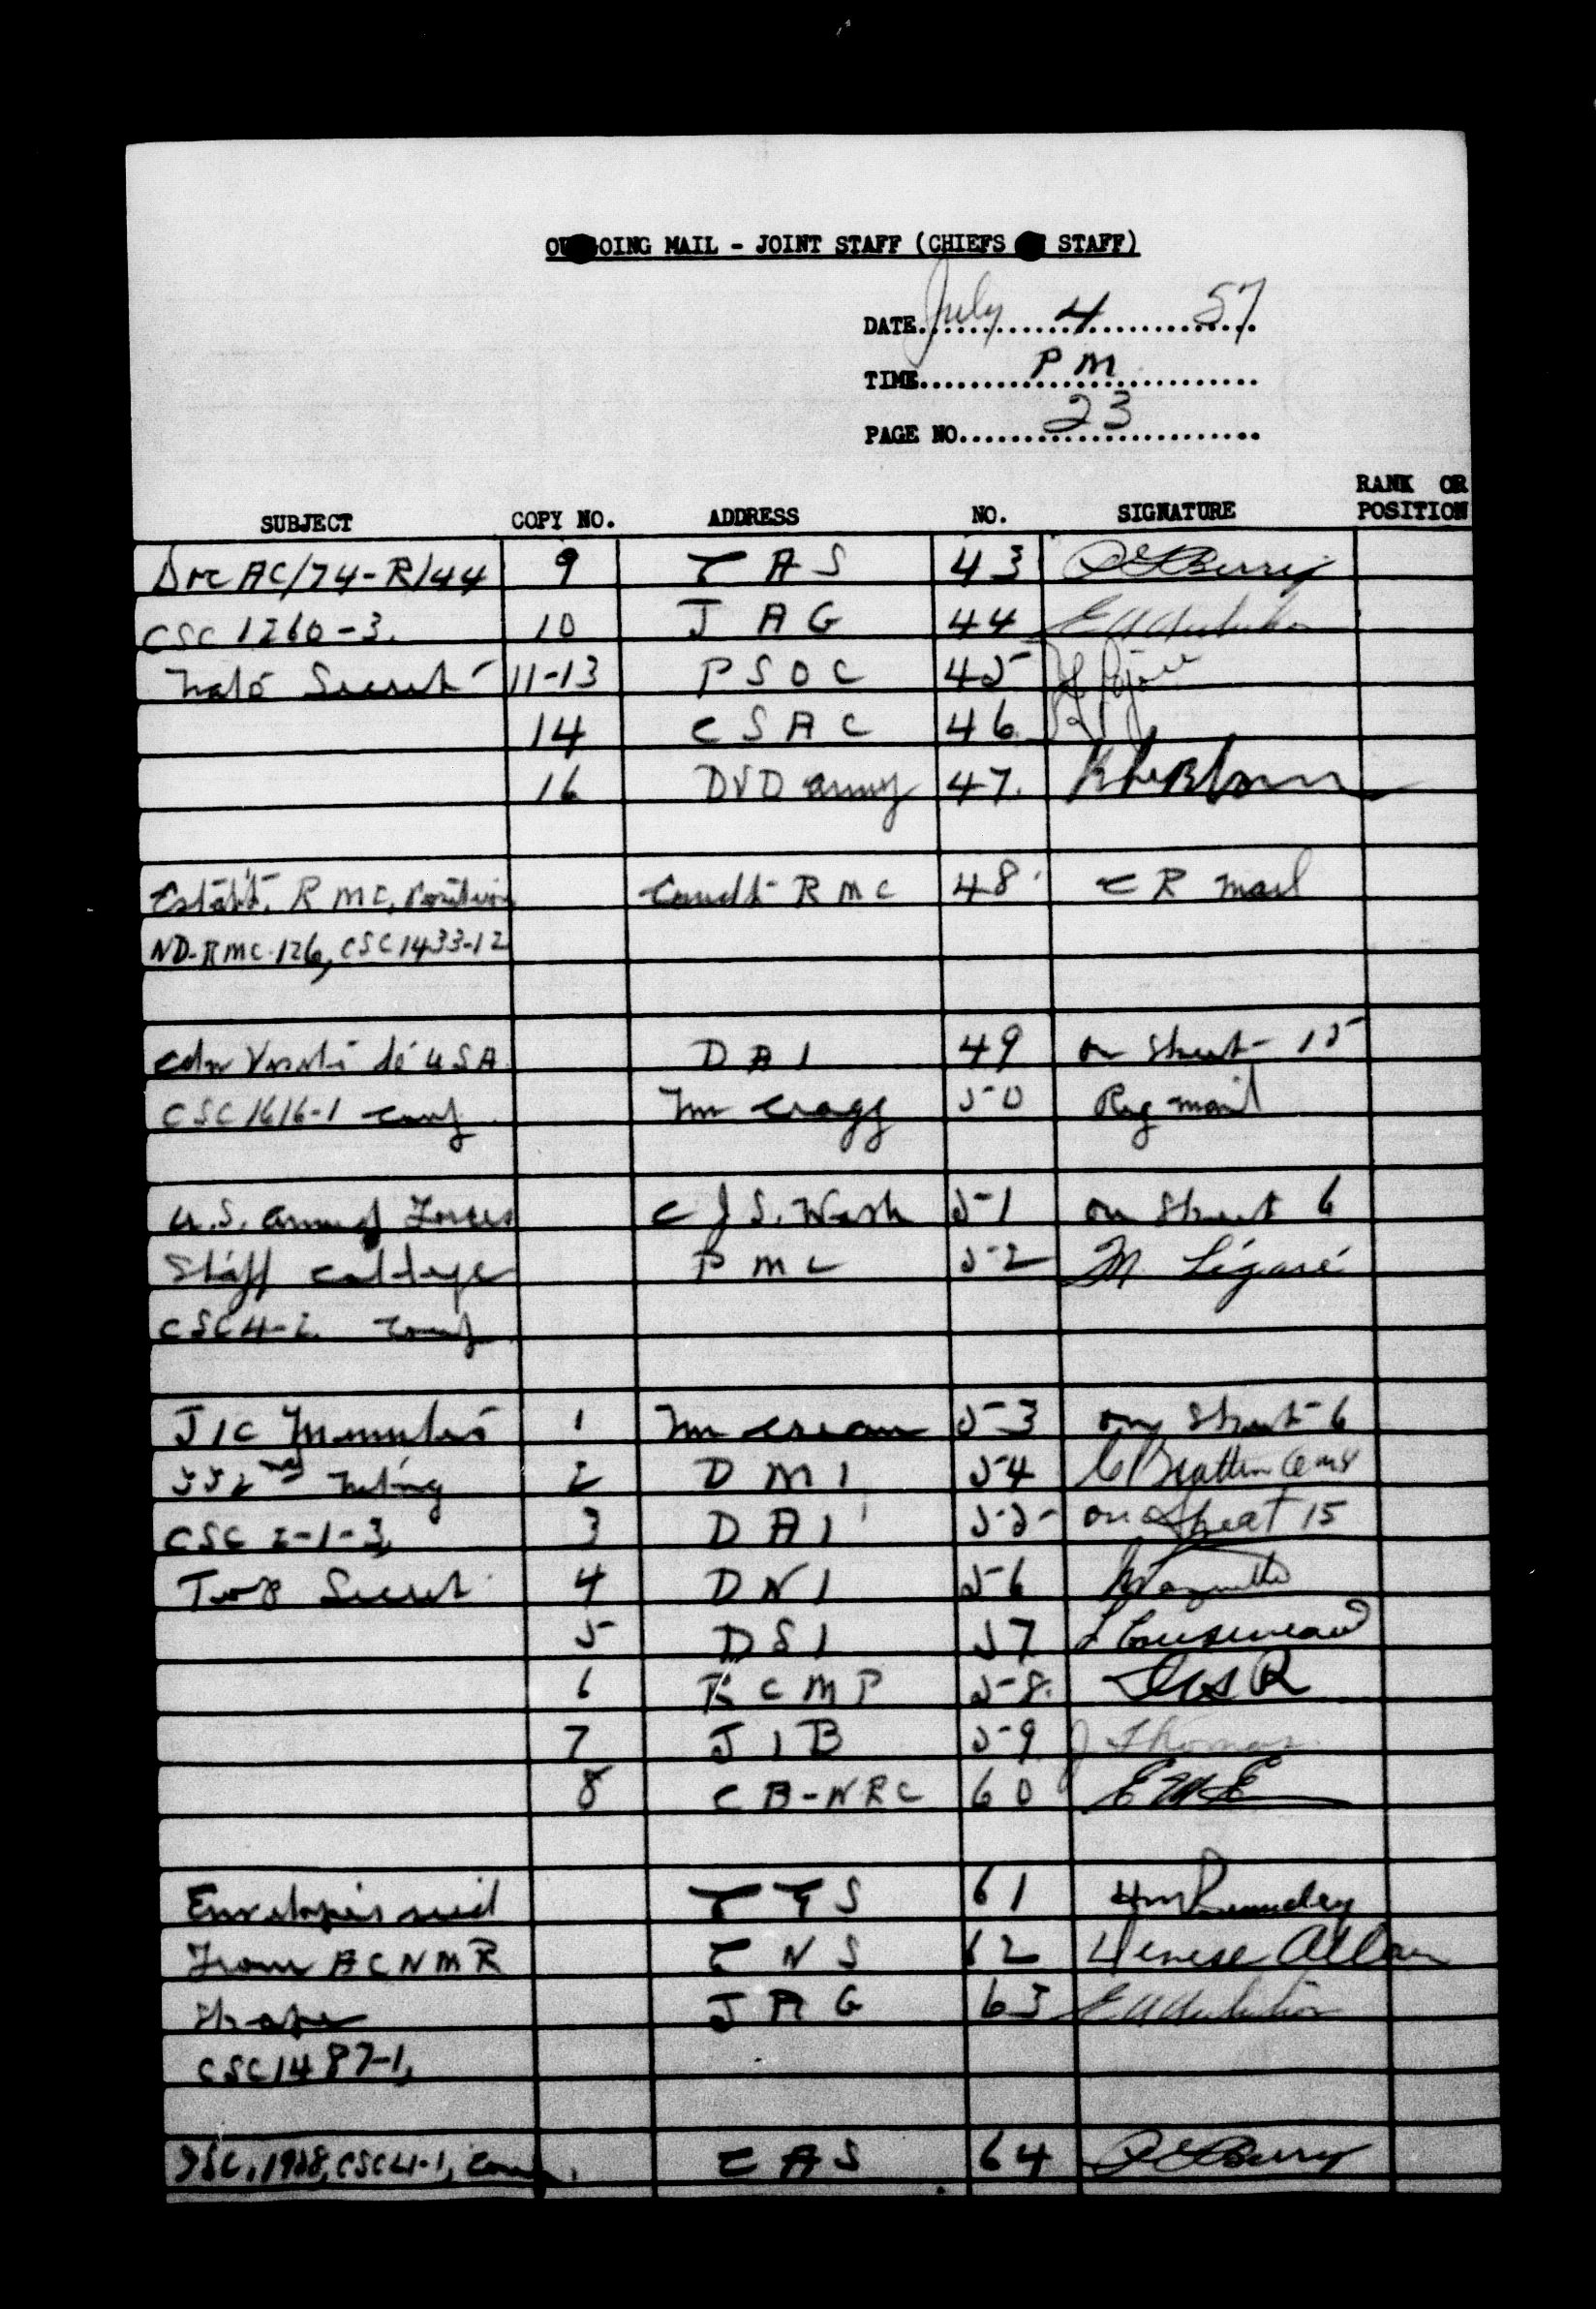 OUTGOING MAIL - JOINT STAFF (CHIEFS OF STAFF)
DATE July 4 57
TIME P M
PAGE NO. 23
SUBJECT COPY NO. ADDRESS NO. SIGNATURE RANK OR POSITION
Doc AC/74-R/44 9 CAS 43 Berry
CSC 1260-3. 10 JAG 44
Nato Secret 11-13 PSOC 45
14 CSAC 46
16 DVD army 47.
Establt. RMC, Position Comdt RMC 48 CR mail
ND-RMC-126, CSC 1433-12
Cdn Visits to USA DAI 49 on Sheet 15
CSC 1616-1 Conf. Mr Cragg 50 Reg mail
U.S. Armed Forces CJS. Wash 51 on Sheet 6
Staff College PMC 52 M Légaré
CSC 4-2 Conf.
JIC Minutes 1 Mr Crean 53 on Sheet 6
552nd Meeting 2 DMI 54
CSC 2-1-3, 3 DAI 55 on Sheet 15
Top Secret 4 DNI 56
5 DSI 57 L Cousineau
6 RCMP 58.
7 JIB 59 J Thomas
8 CB-NRC 60
Envelopes recd CGS 61
From ACNMR CNS 62 Denise Allan
Shape JAG 63
CSC 1487-1,
CSC 4-1, Conf. CAS 64 Berry